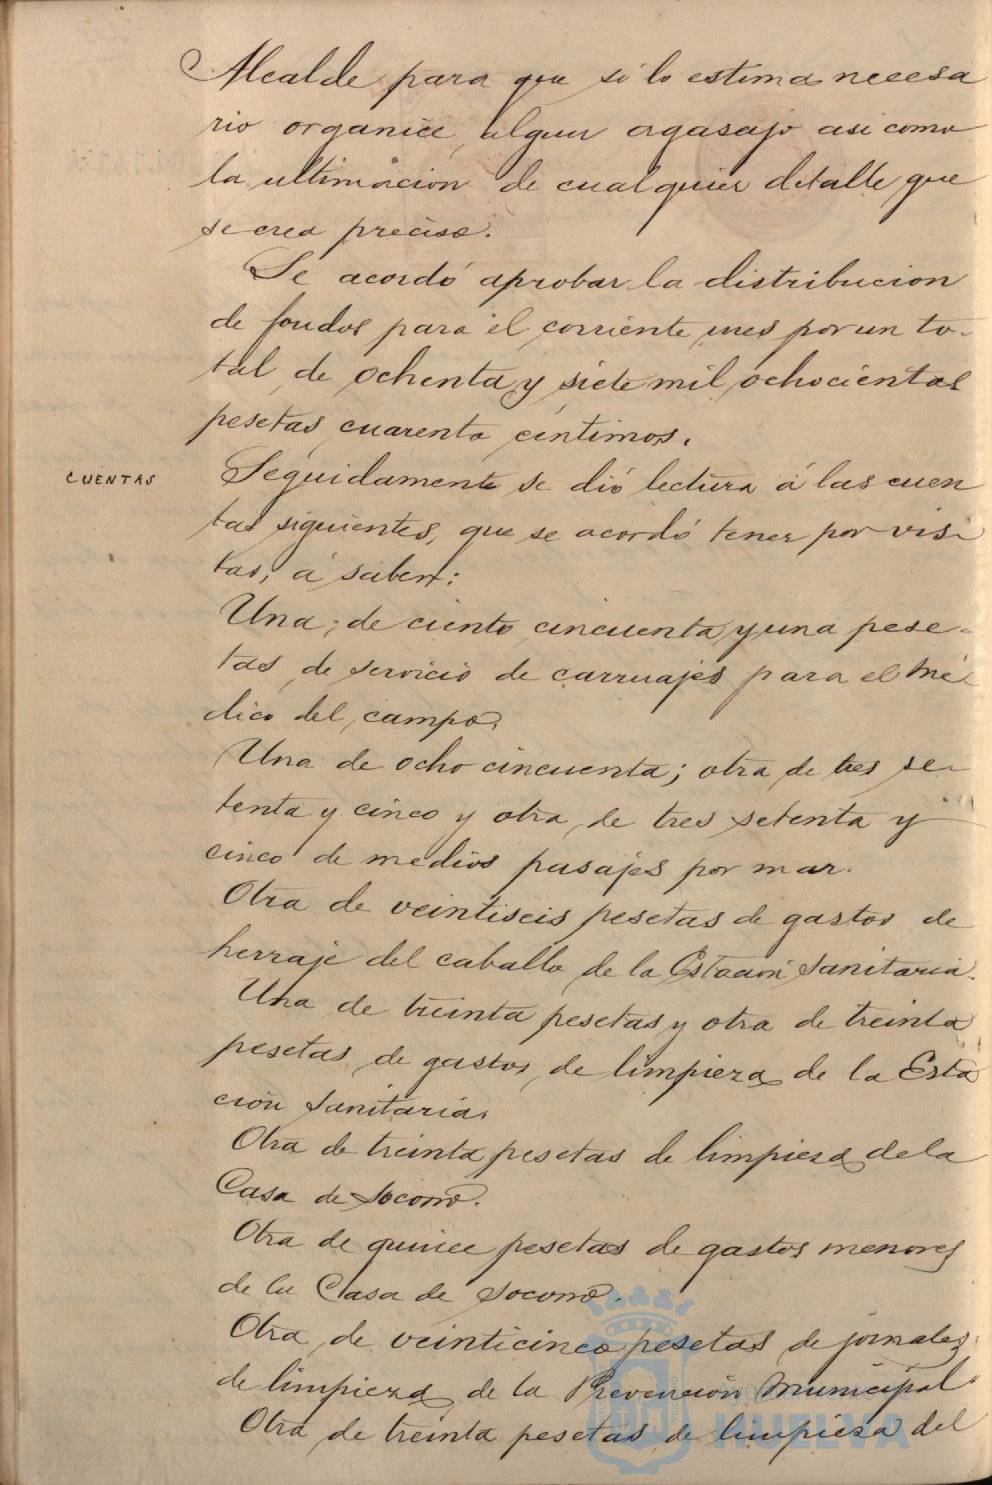 Alcalde para que si lo estima necesa
rio organice algun agasajo asi como
la ultimacion de cualquier detalle que
se crea preciso.
Se acordó aprobar la distribucion
de fondos para el corriente mes por un to-
tal de ochenta y siete mil ochocientas
pesetas cuarenta céntimos.
CUENTAS
Seguidamente se dió lectura á las cuen
tas siguientes, que se acordó tener por vis-
tas, á saber:
Una, de ciento cincuenta y una pese-
tas de servicio de carruajes para el mé-
dico del campo.
Una de ocho cincuenta; otra de tres se-
tenta y cinco y otra de tres setenta y
cinco de medios pasajes por mar.
Otra de veintiseis pesetas de gastos de
herraje del caballo de la Estación Sanitaria.
Una de treinta pesetas y otra de treinta
pesetas de gastos de limpieza de la Esta
ción Sanitaria.
Otra de treinta pesetas de limpieza de la
Casa de Socorro.
Otra de quince pesetas de gastos menores
de la Casa de Socorro.
Otra de veinticinco pesetas de jornales
de limpieza de la Prevención Municipal
Otra de treinta pesetas de limpieza del
HUELVA